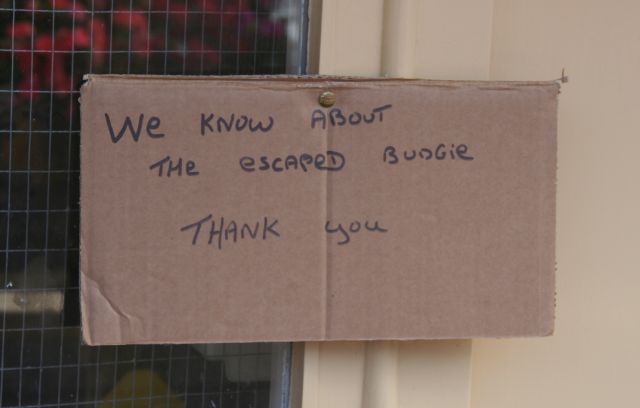 We KNOW ABOUT
THe eSCAPED BUDGie
THANK you